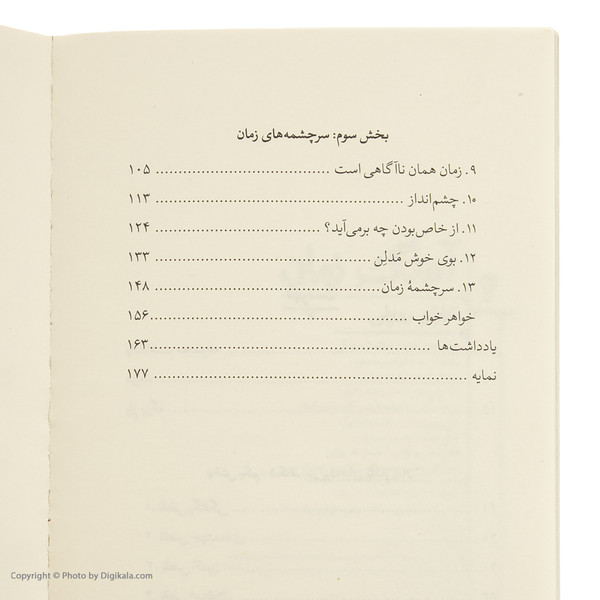 بخش سوم: سرچشمه‌های زمان
۹. زمان همان ناآگاهی است ...................................... ۱۰۵
۱۰. چشم‌انداز ...................................................... ۱۱۳
۱۱. از خاص‌بودن چه برمی‌آید؟ .................................... ۱۲۴
۱۲. بوی خوش مَدلِن ............................................... ۱۳۳
۱۳. سرچشمهٔ زمان................................................. ۱۴۸
خواهر خواب ........................................................۱۵۶
یادداشت‌ها ............................................................۱۶۳
نمایه .................................................................... ۱۷۷
Copyright © Photo by Digikala.com